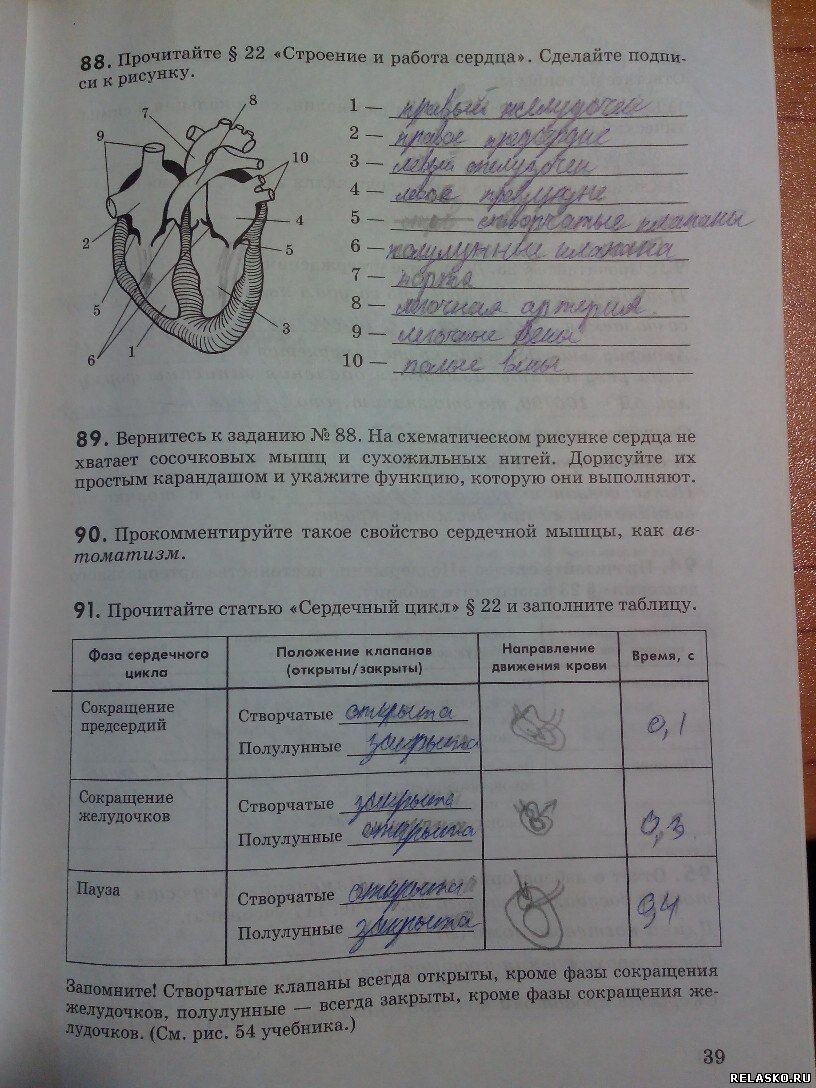 88. Прочитайте § 22 «Строение и работа сердца». Сделайте подпи-
си к рисунку.
8
7
9
10
2
4
5
5
3
6
1
1 — правый желудочек
2 — правое предсердие
3 — левый желудочек
4 — левое предсердие
5 — створчатые клапаны
6 — полулунные клапана
7 — аорта
8 — легочная артерия.
9 — легочные вены
10 — полые вены
89. Вернитесь к заданию № 88. На схематическом рисунке сердца не
хватает сосочковых мышц и сухожильных нитей. Дорисуйте их
простым карандашом и укажите функцию, которую они выполняют.
90. Прокомментируйте такое свойство сердечной мышцы, как ав-
томатизм.
91. Прочитайте статью «Сердечный цикл» § 22 и заполните таблицу.
Фаза сердечного
цикла
Положение клапанов
(открыты/закрыты)
Направление
движения крови
Время, с
Сокращение
предсердий
Створчатые открыта
Полулунные закрыта
0,1
Сокращение
желудочков
Створчатые закрыта
Полулунные открыта
0,3
Пауза
Створчатые открыта
Полулунные закрыта
0,4
Запомните! Створчатые клапаны всегда открыты, кроме фазы сокращения
желудочков, полулунные — всегда закрыты, кроме фазы сокращения же-
лудочков. (См. рис. 54 учебника.)
39
RELASKO.RU